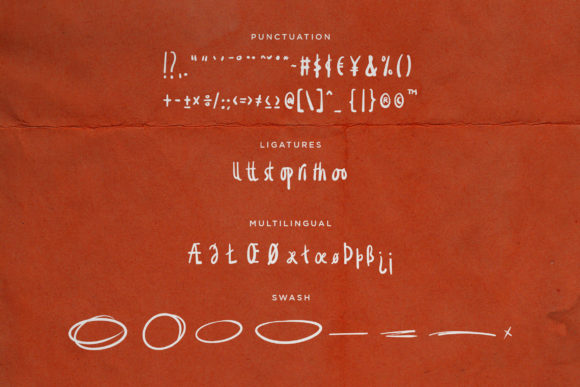 PUNCTUATION
!?,. " " ' ' - ~ # $ ¢ € ¥ & % ( )
+ - ± × ÷ / : ; < = > ≠ ≤ ≥ @ [ \ ] ^ _ { | } ® © ™
LIGATURES
ll tt st op ri th oo
MULTILINGUAL
Æ Ł Œ Ø æ ł œ ø Þ þ ß ¿ ¡
SWASH